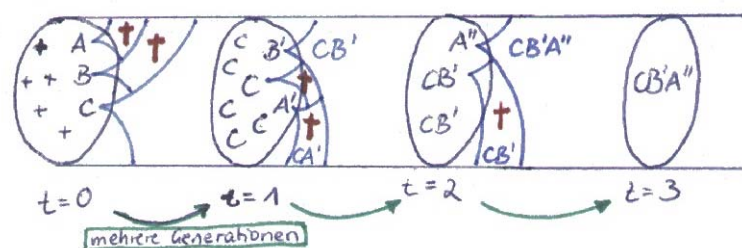 + A † †
+ + B
+ C
+
C B' CB'
C
C C †
C A' †
C C CA'
A'' CB'A''
CB'
CB' †
CB'
CB'A''
t=0 t=1 t=2 t=3
mehrere Generationen